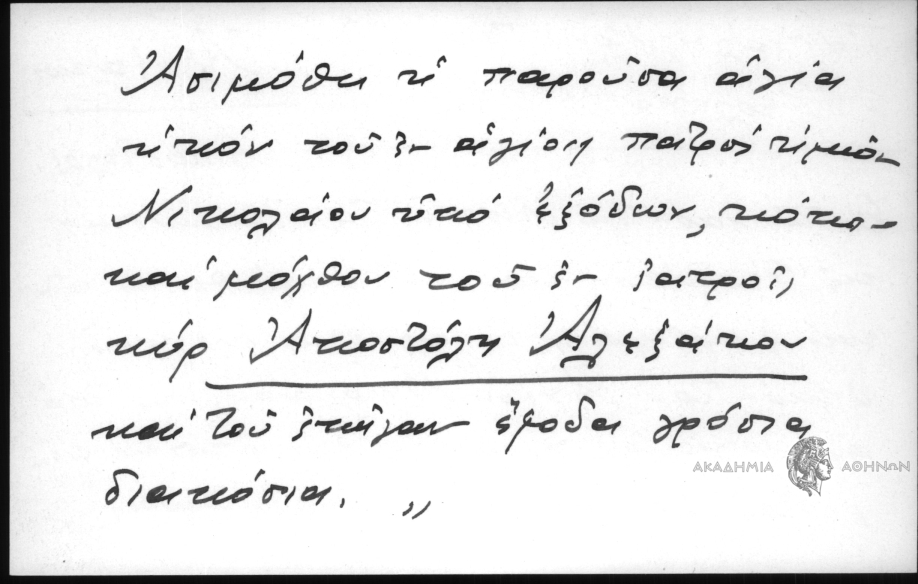 Ἀσιμόθη ἡ παροῦσα ἁγία
ἠκόν τοῦ ἐν ἁγίοις πατρός ἡμῶν
Νικολάου ὑπό ἐξόδων, κόπου
καί μόχθου τοῦ ἐν ἰατροῖς
κύρ Ἀποστόλη Ἀλεξάκου
καί τοῦ ἐπῆγαν ἔξοδα γρόσια
διακόσια. „
ΑΚΑΔΗΜΙΑ ΑΘΗΝΩΝ